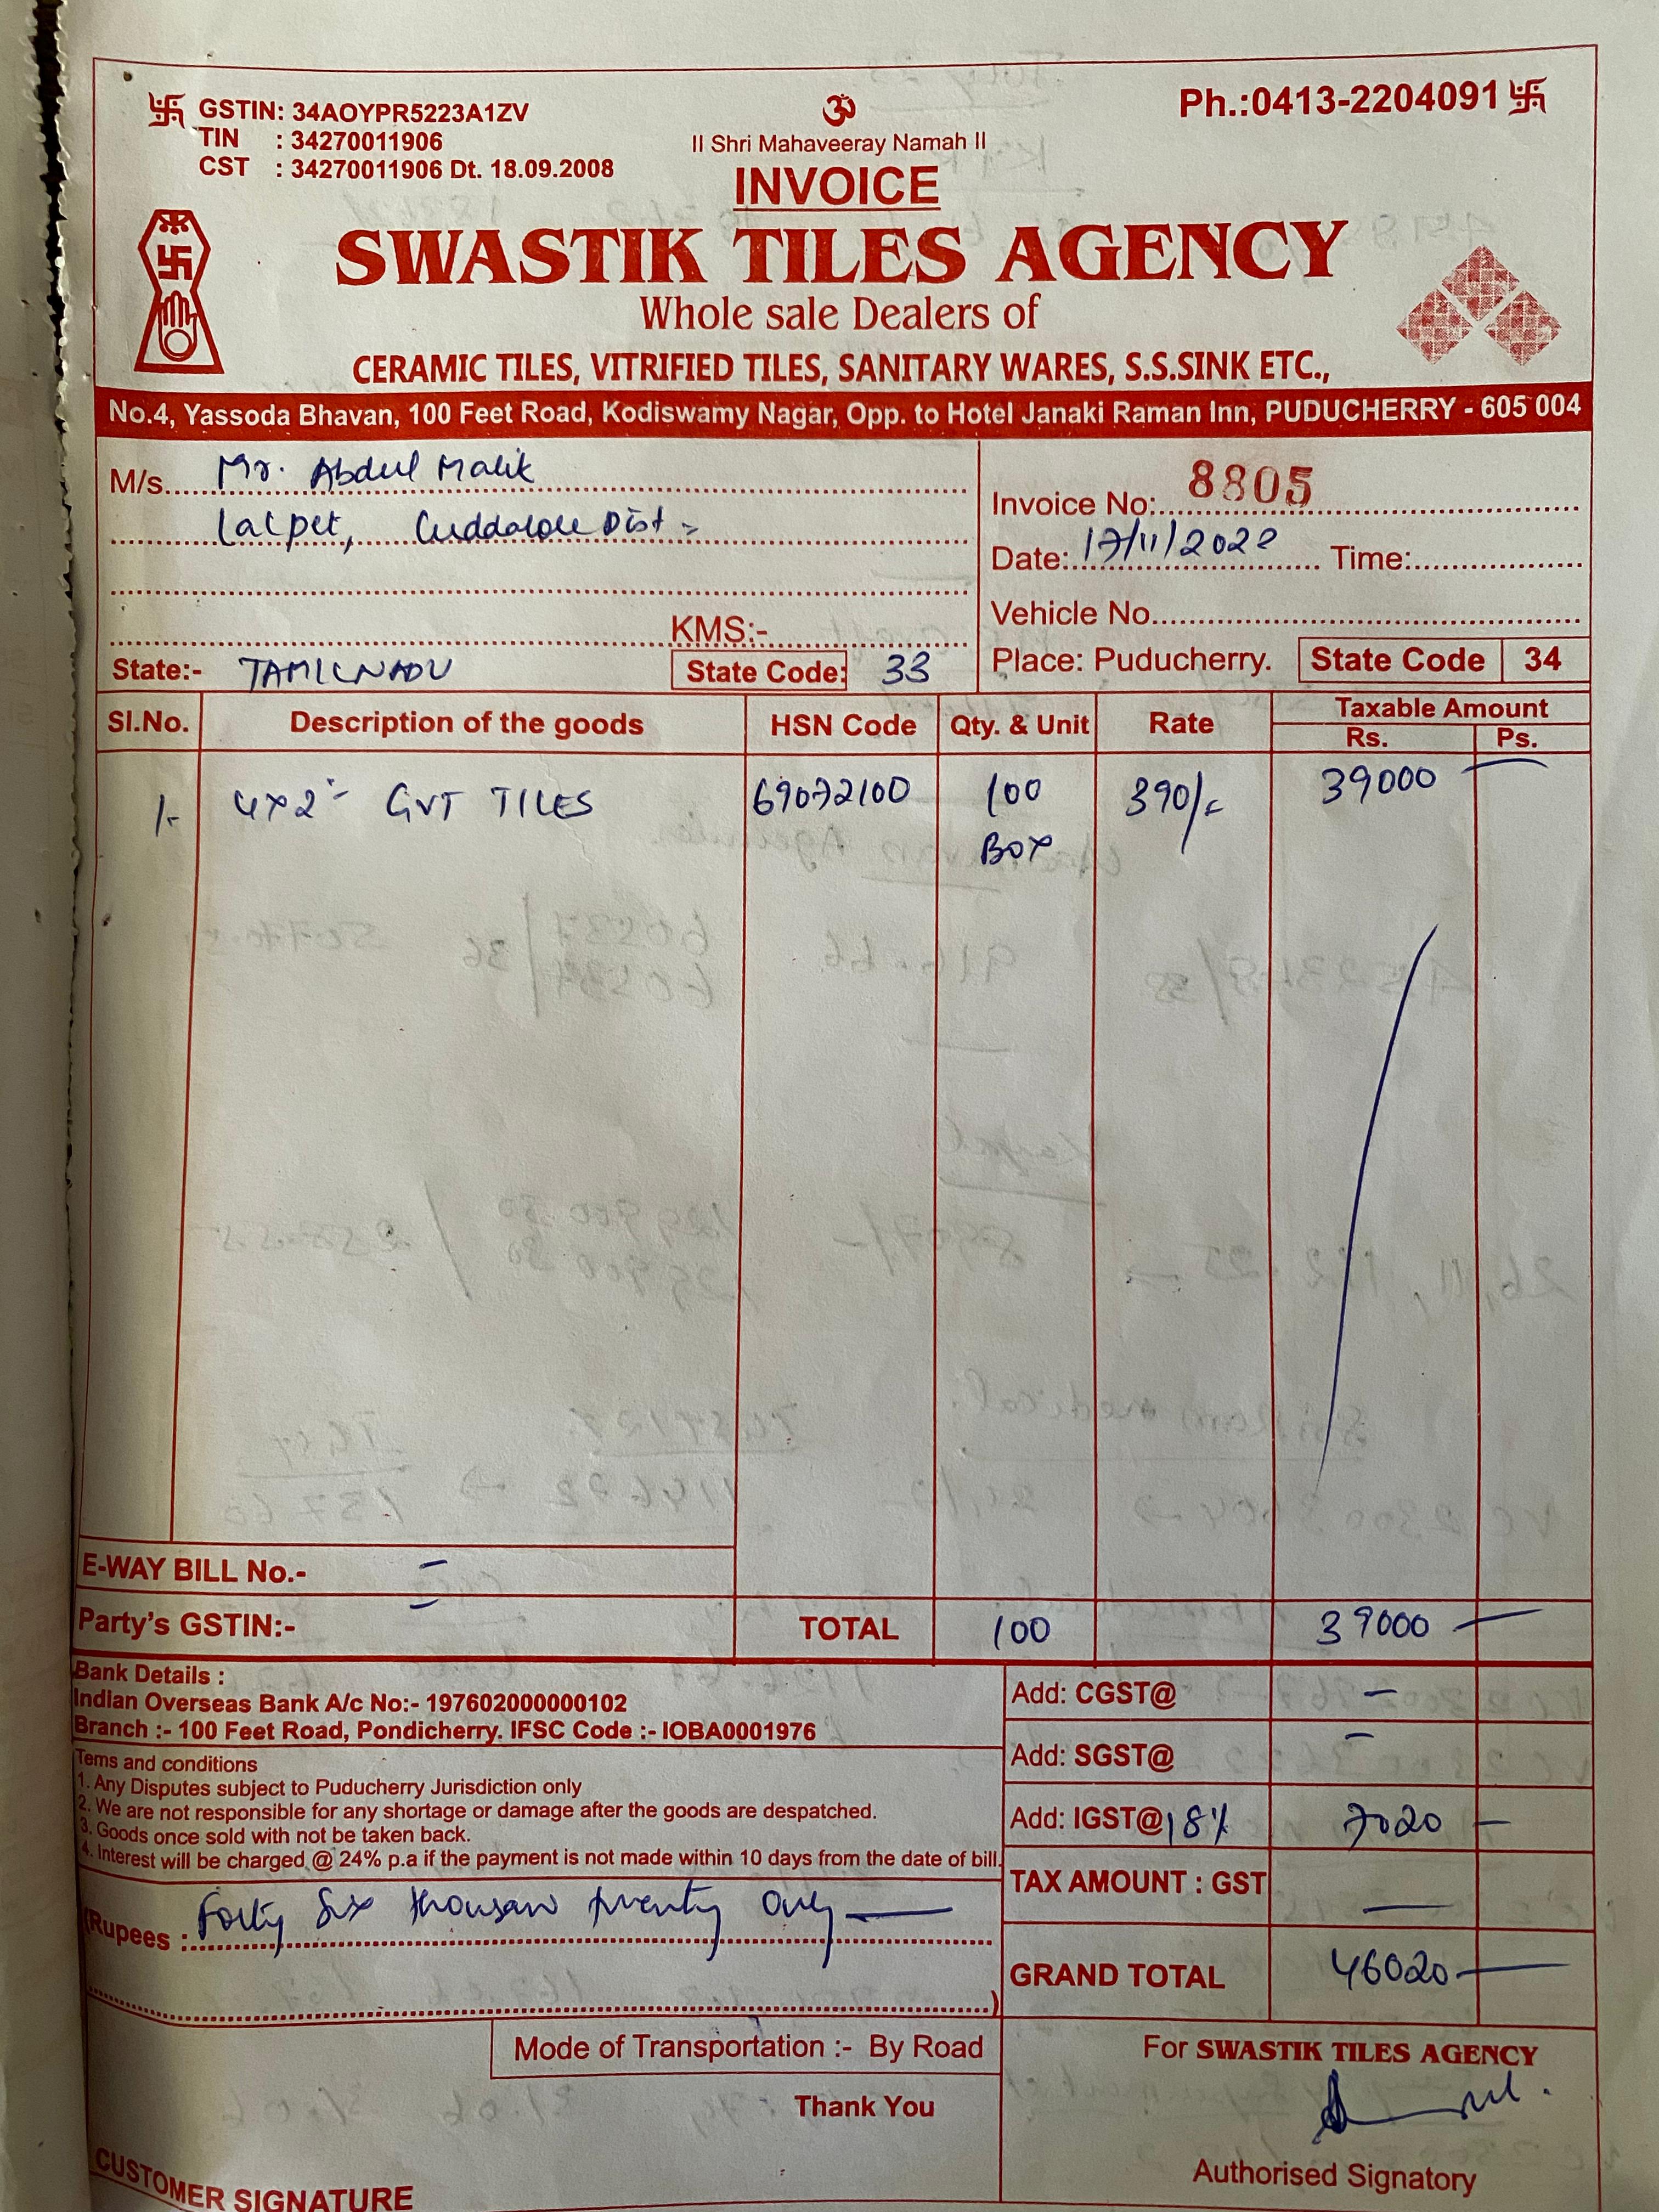 GSTIN: 34AOYPR5223A1ZV
TIN : 34270011906
CST : 34270011906 Dt. 18.09.2008
ॐ
II Shri Mahaveeray Namah II
Ph.:0413-2204091
INVOICE
SWASTIK TILES AGENCY
Whole sale Dealers of
CERAMIC TILES, VITRIFIED TILES, SANITARY WARES, S.S.SINK ETC.,
No.4, Yassoda Bhavan, 100 Feet Road, Kodiswamy Nagar, Opp. to Hotel Janaki Raman Inn, PUDUCHERRY - 605 004
M/s. Mr. Abdul Malik
Lalpet, Cuddalore Dist -
KMS:-
State:- TAMILNADU State Code: 33
Invoice No: 8805
Date: 17/11/2022 Time:
Vehicle No.
Place: Puducherry. State Code 34
Sl.No. Description of the goods HSN Code Qty. & Unit Rate Taxable Amount
Rs. Ps.
1- 4x2 - GVT TILES 69072100 100 BOX 390/- 39000 —
E-WAY BILL No.-
Party's GSTIN:-
TOTAL 100 39000 —
Bank Details :
Indian Overseas Bank A/c No:- 197602000000102
Branch :- 100 Feet Road, Pondicherry. IFSC Code :- IOBA0001976
Tems and conditions
1. Any Disputes subject to Puducherry Jurisdiction only
2. We are not responsible for any shortage or damage after the goods are despatched.
3. Goods once sold with not be taken back.
4. Interest will be charged @ 24% p.a if the payment is not made within 10 days from the date of bill.
Add: CGST@ —
Add: SGST@ —
Add: IGST@ 18% 7020 —
TAX AMOUNT : GST —
GRAND TOTAL 46020 —
(Rupees : Forty Six thousan twenty Only —
)
Mode of Transportation :- By Road
Thank You
CUSTOMER SIGNATURE
For SWASTIK TILES AGENCY
Authorised Signatory